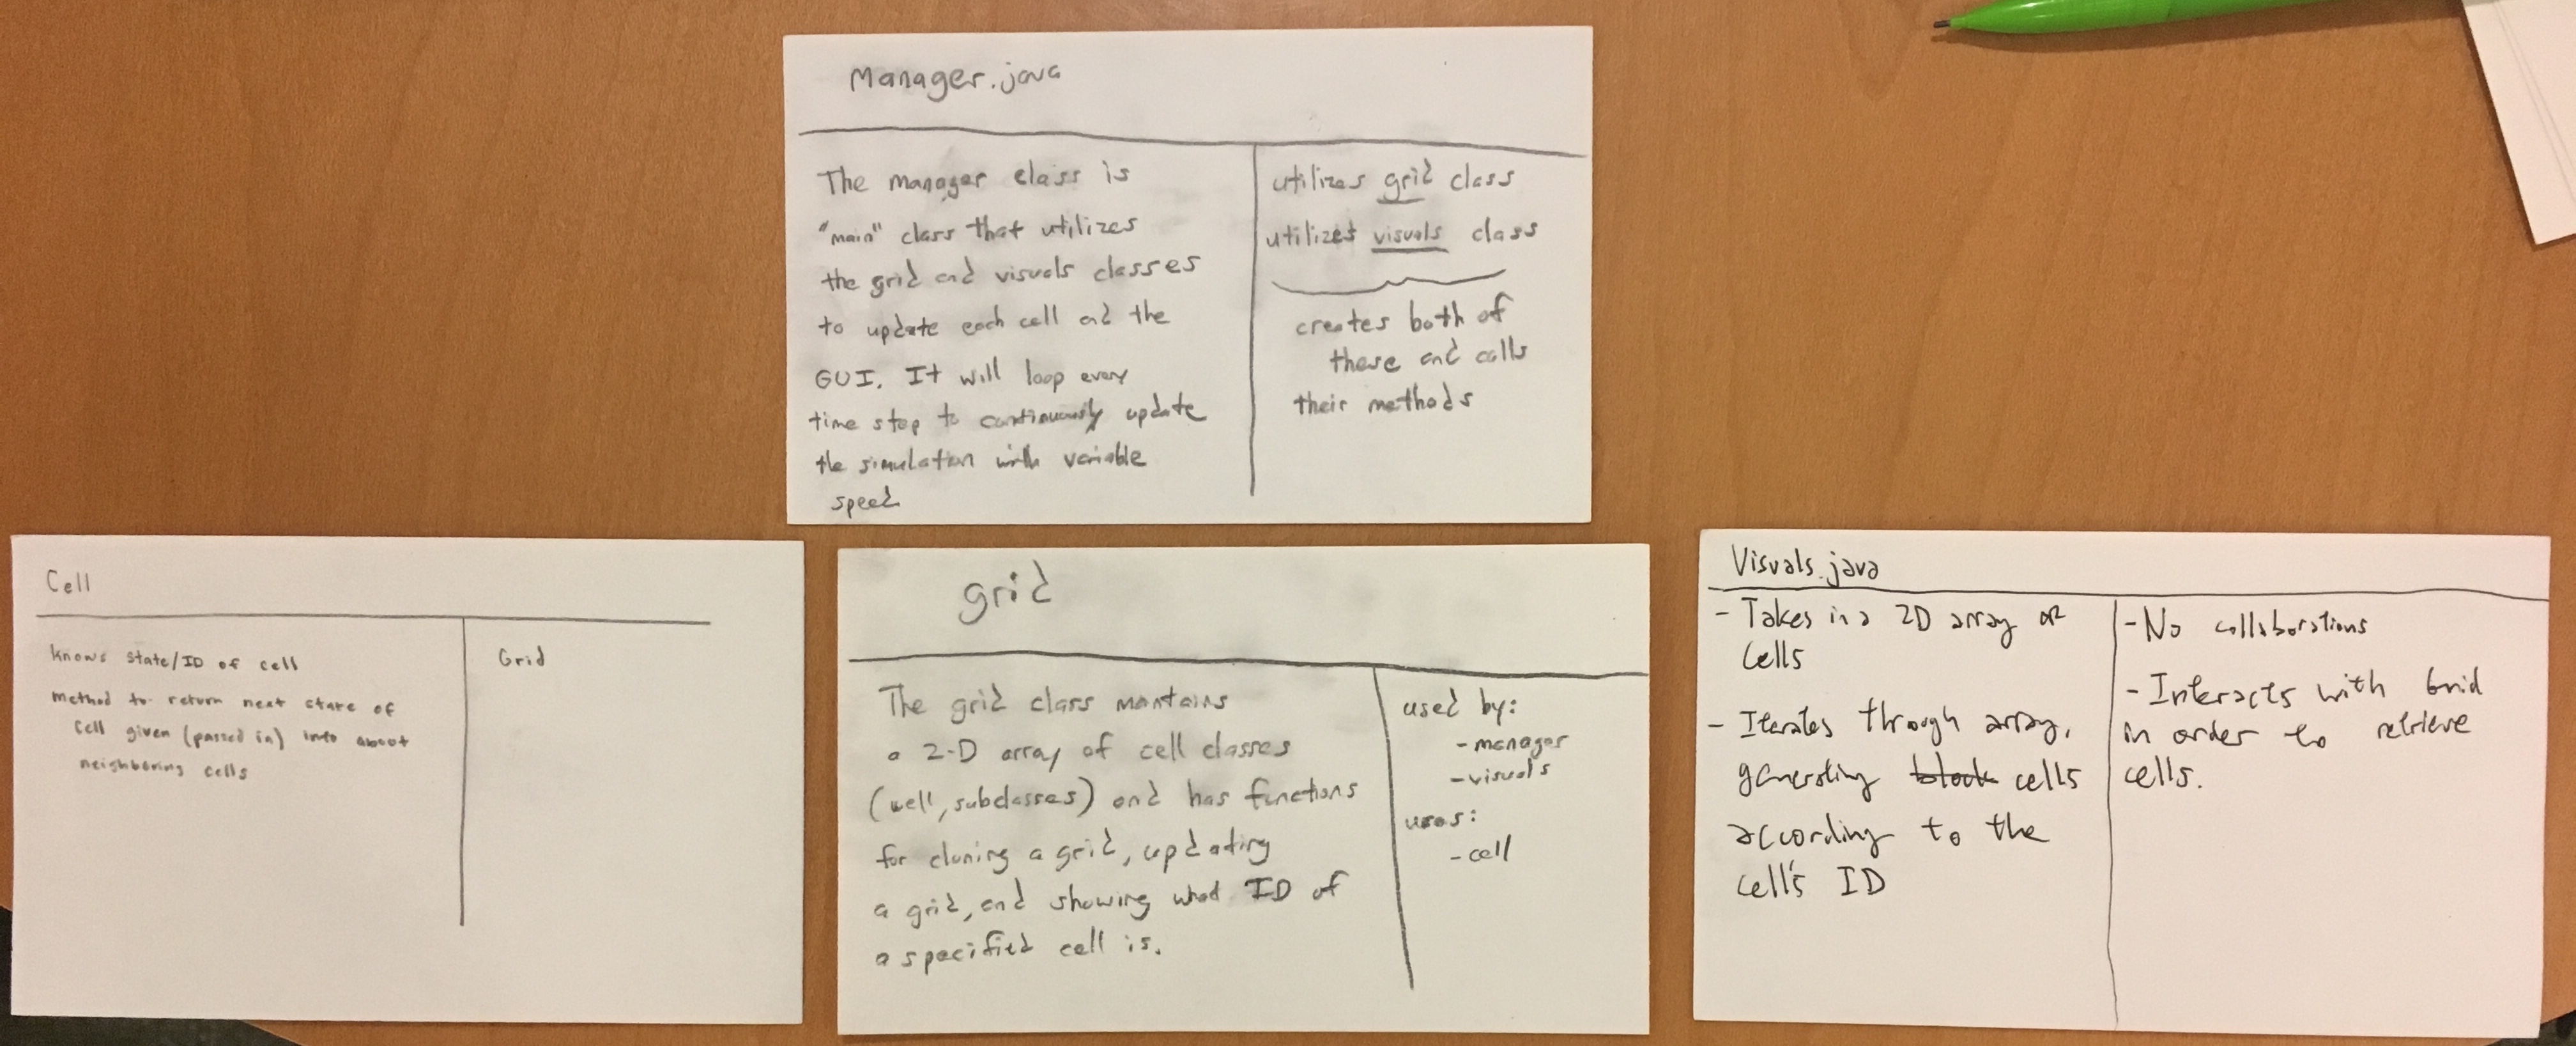 Manager.java
The manager class is
"main" class that utilizes
the grid and visuals classes
to update each cell and the
GUI. It will loop every
time step to continuously update
the simulation with variable
speed
utilizes grid class
utilizes visuals class
creates both of
these and calls
their methods
Cell
knows state/ID of cell
method to return next state of
cell given (passed in) info about
neighboring cells
Grid
grid
The grid class mantains
a 2-D array of cell classes
(well, subclasses) and has functions
for cloning a grid, updating
a grid, and showing what ID of
a specified cell is.
used by:
- manager
- visuals
uses:
- cell
Visuals.java
- Takes in a 2D array of
cells
- Iterates through array,
generating block cells
according to the
cell's ID
- No collaborations
- Interacts with Grid
in order to retrieve
cells.